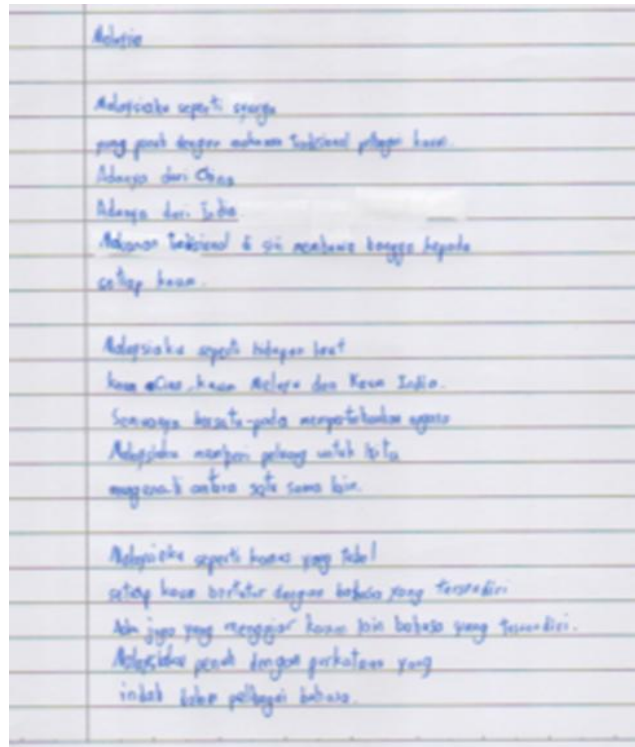 Malaysiaku seperti syurga
yang penuh dengan makanan tradisional pelbagai kaum.
Adanya dari China
Adanya dari India
Makanan tradisional di sini membawa bangga kepada
setiap kaum.
Malaysiaku seperti hidupan laut
kaum Cina, kaum Melayu dan Kaum India.
Semuanya bersatu-padu mempertahankan negara
Malaysiaku memberi peluang untuk kita
mengenali antara satu sama lain.
Malaysiaku seperti kamus yang tebal
setiap kaum bertutur dengan bahasa yang tersendiri
Ada juga yang mengajar kaum lain bahasa yang tersendiri.
Malaysiaku penuh dengan perkataan yang
indah dalam pelbagai bahasa.